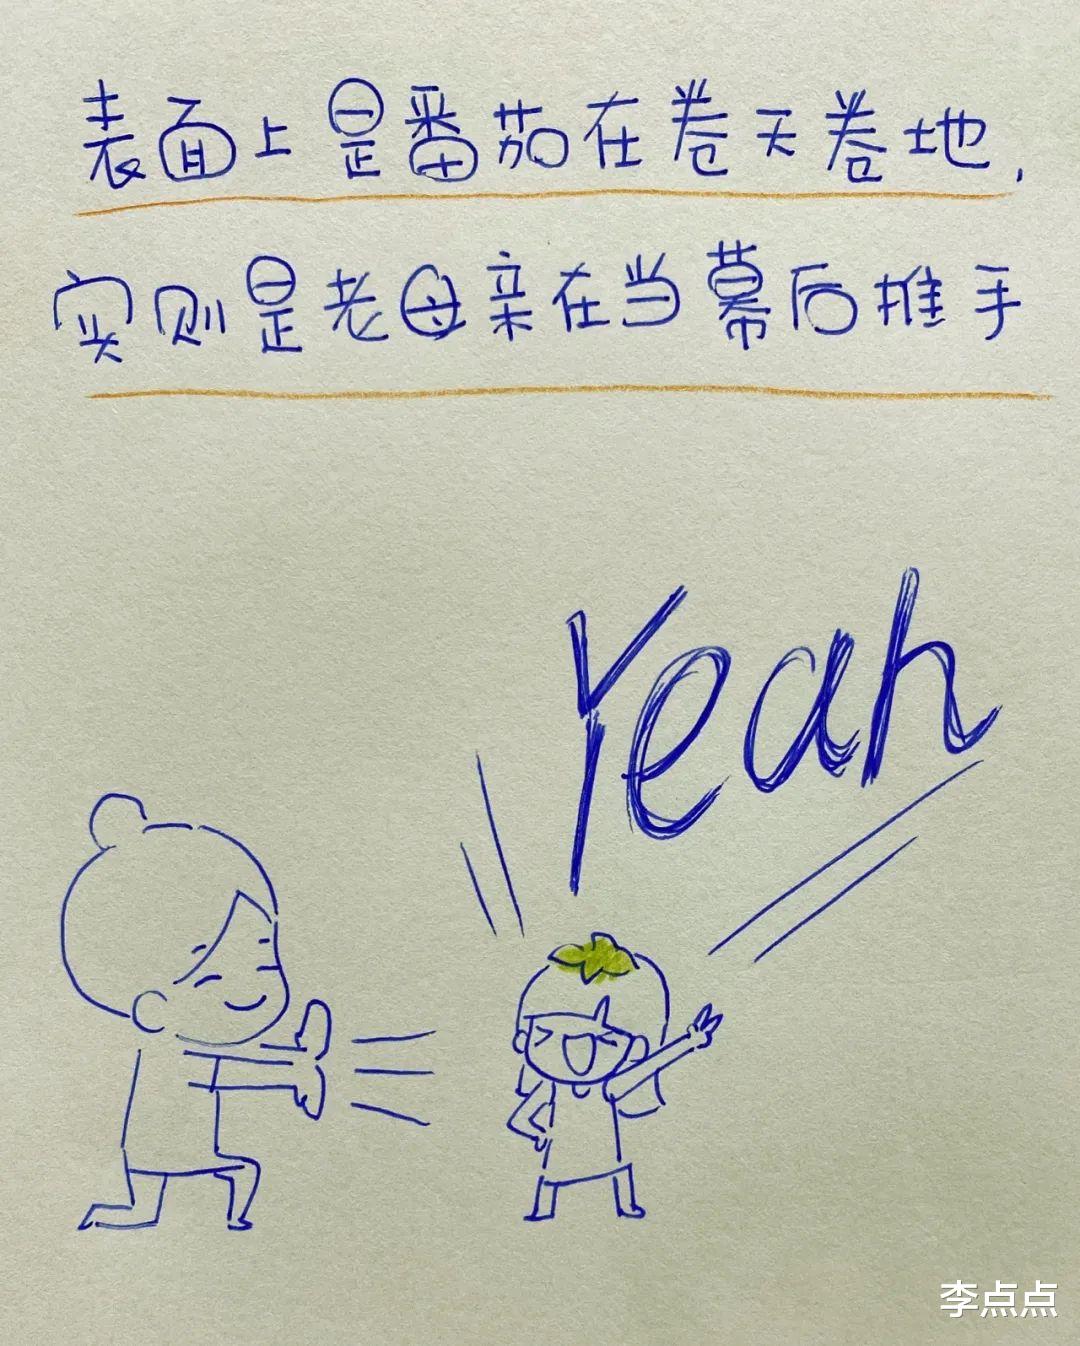 表面上是番茄在卷天卷地,
实则是老母亲在当幕后推手
Yeah
李点点